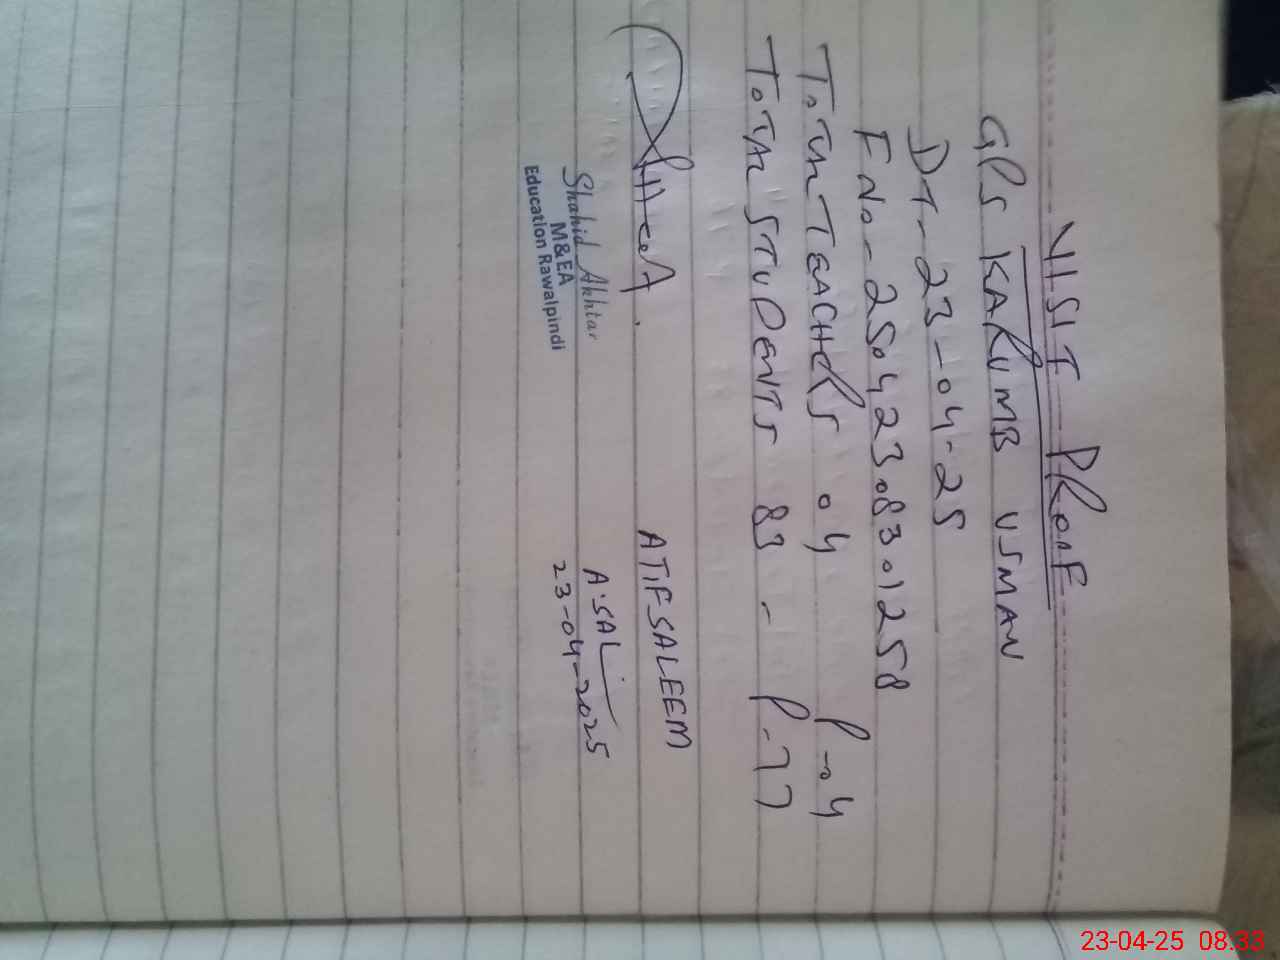 VISIT PROOF
GPS KARUMB USMAN
DT-23-04-25
F No-2504230830 1258
TOTAL TEACHERS 04 P-04
TOTAL STUDENTS 83 - P-77
ATIF SALEEM
A.SAL
23-04-2025
Shahid Akhtar
M&EA
Education Rawalpindi
23-04-25 08:33